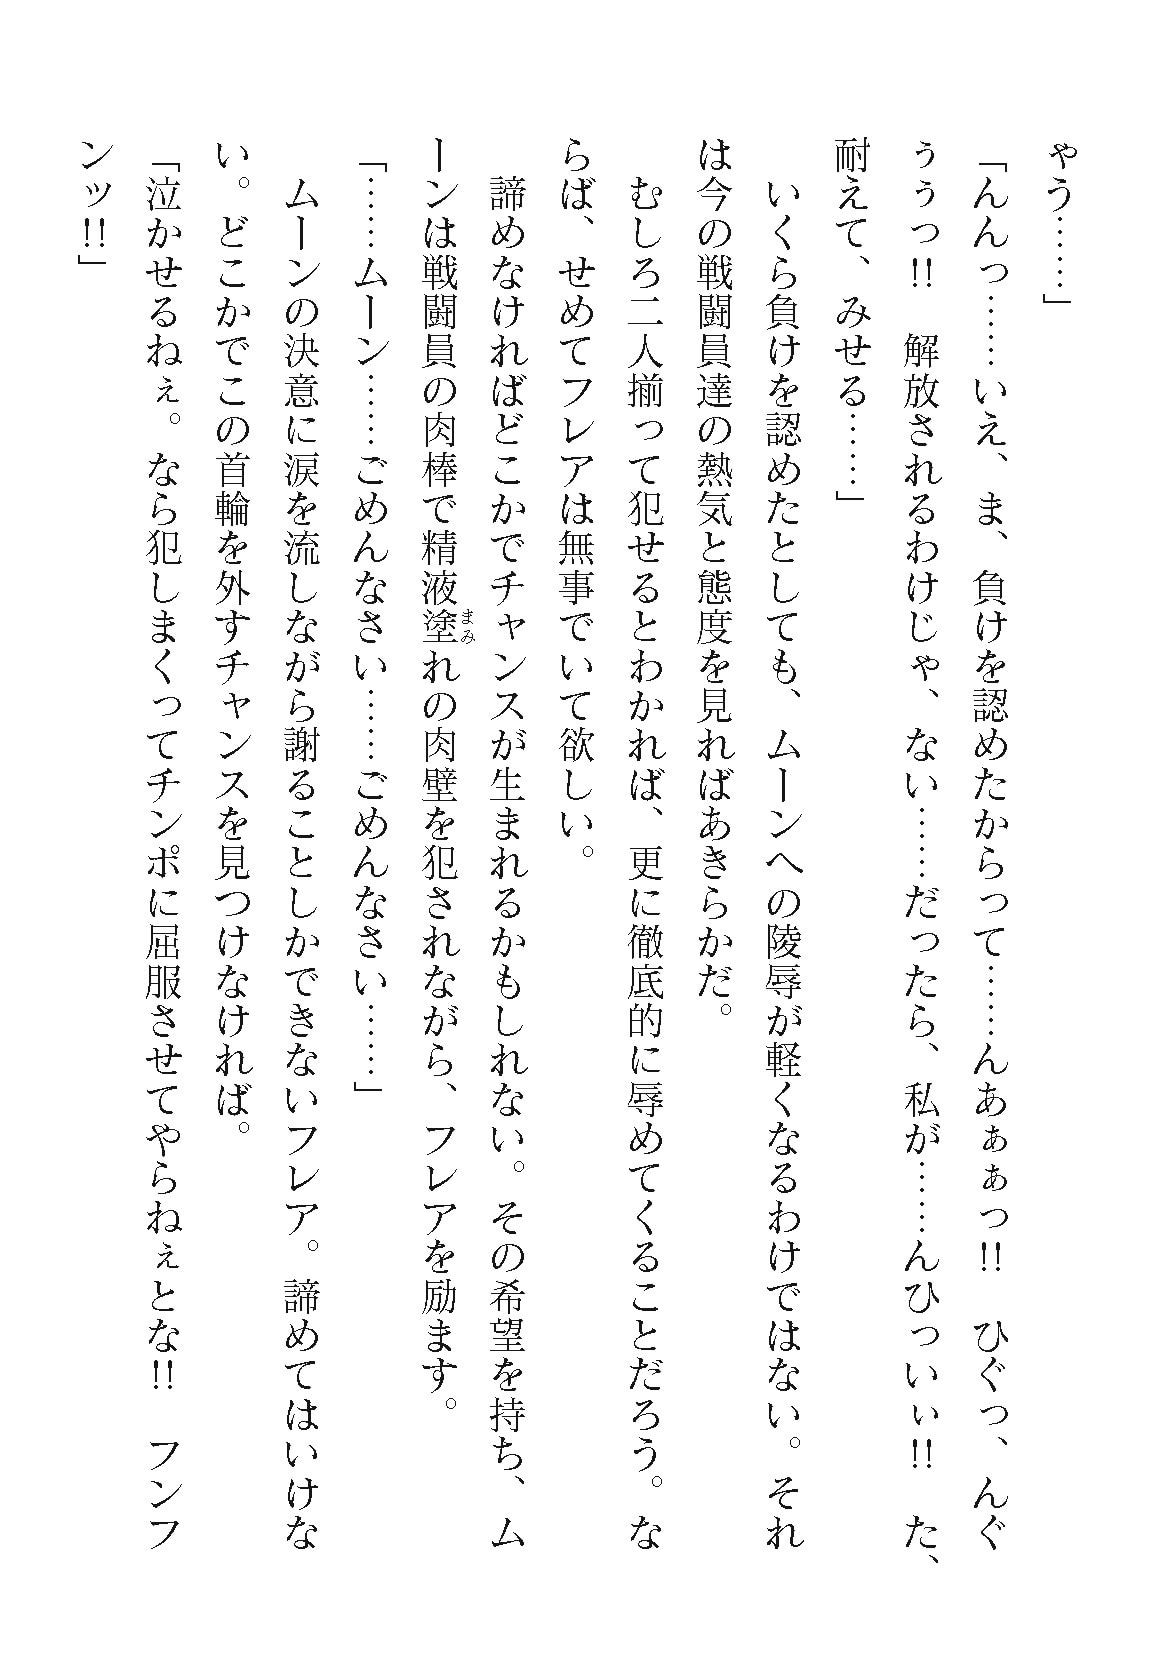 ゃう……」
「んんっ……いえ、ま、負けを認めたからって……んあぁぁっ!!　ひぐっ、んぐ
ぅぅっ!!　解放されるわけじゃ、ない……だったら、私が……んひっいぃ!!　た、
耐えて、みせる……」
　いくら負けを認めたとしても、ムーンへの陵辱が軽くなるわけではない。それ
は今の戦闘員達の熱気と態度を見ればあきらかだ。
　むしろ二人揃って犯せるとわかれば、更に徹底的に辱めてくることだろう。な
らば、せめてフレアは無事でいて欲しい。
　諦めなければどこかでチャンスが生まれるかもしれない。その希望を持ち、ム
まみ
ーンは戦闘員の肉棒で精液塗れの肉壁を犯されながら、フレアを励ます。
「……ムーン……ごめんなさい……ごめんなさい……」
　ムーンの決意に涙を流しながら謝ることしかできないフレア。諦めてはいけな
い。どこかでこの首輪を外すチャンスを見つけなければ。
「泣かせるねぇ。なら犯しまくってチンポに屈服させてやらねぇとな!!　フンフ
ンッ!!」